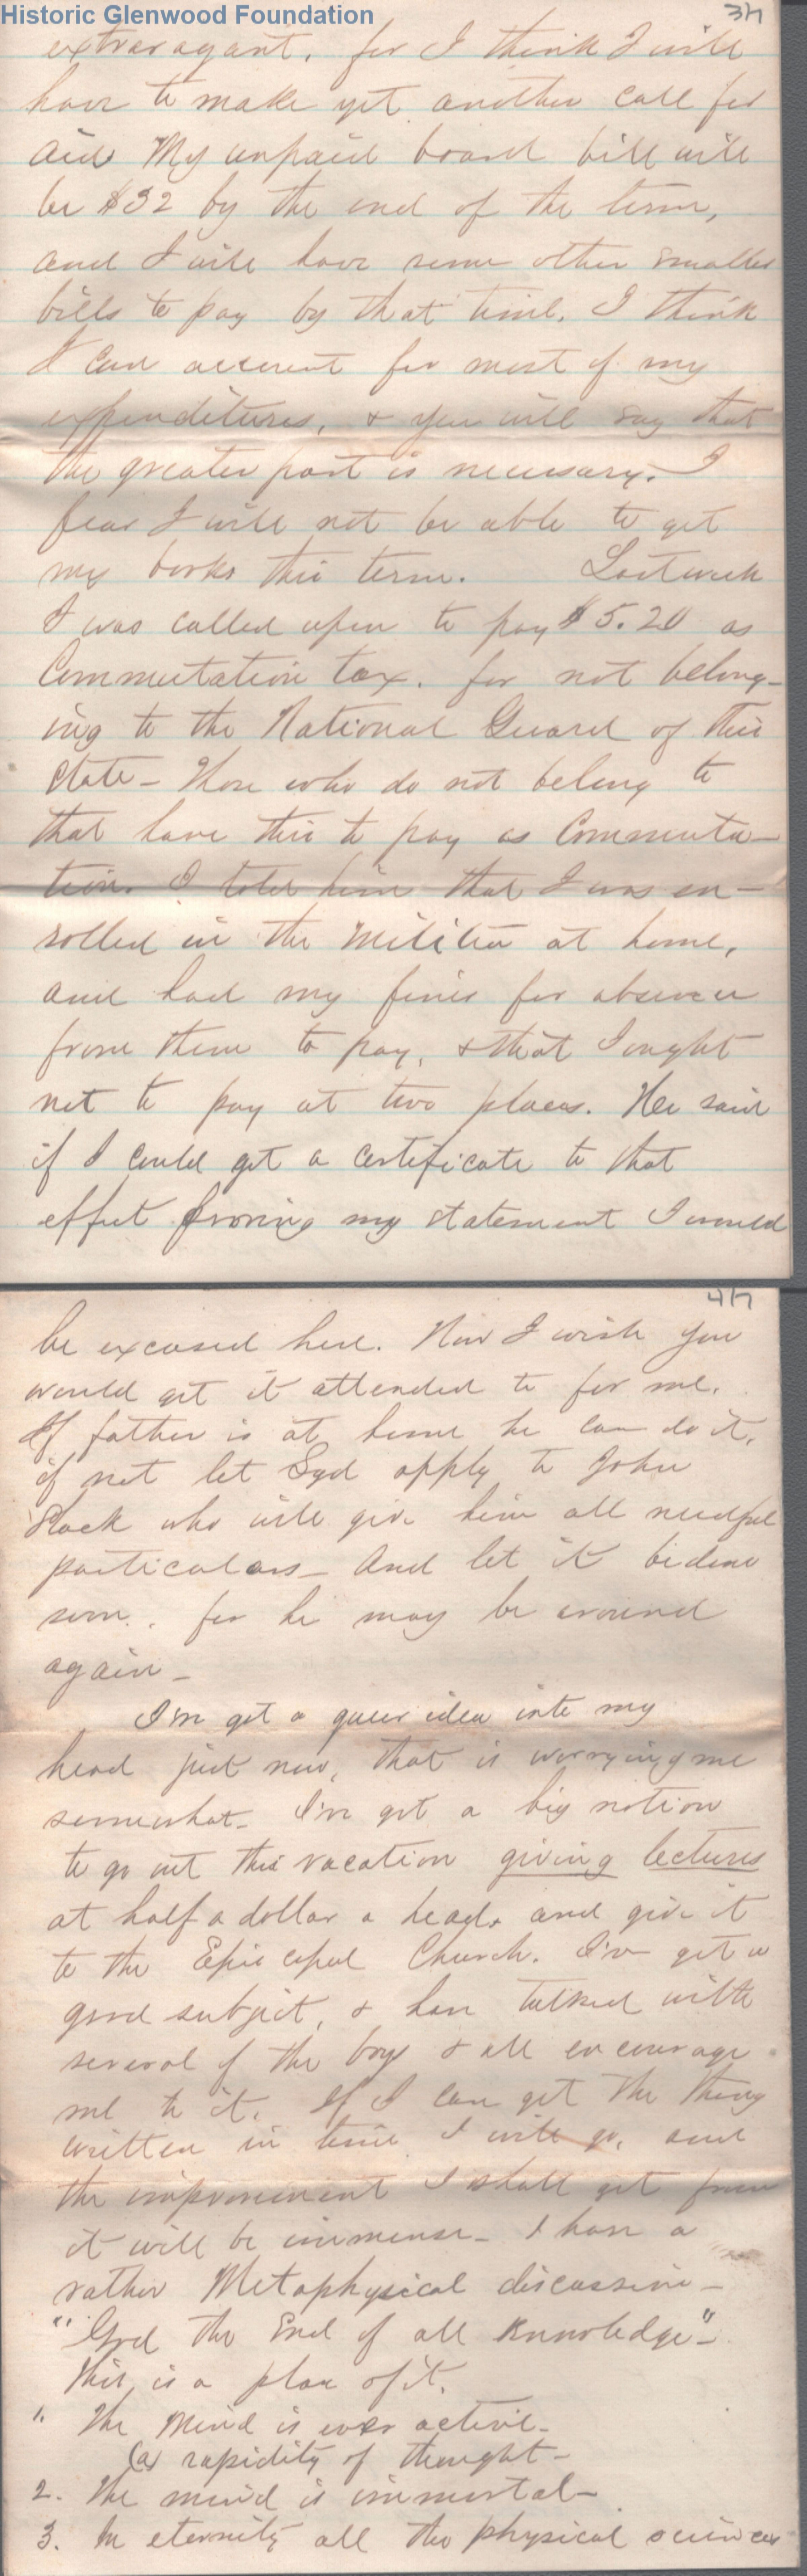 Historic Glenwood Foundation
extravagant, for I think I will
have to make yet another call for
aid. My unpaid board bill will
be $32 by the end of the term,
and I will have some other smaller
bills to pay by that time. I think
I can account for most of my
expenditures, & you will say that
the greater part is necessary. I
fear I will not be able to get
my books this term. Last week
I was called upon to pay $5.20 as
Commutation tax. for not belong-
ing to the National Guard of this
State - Those who do not belong to
that have this to pay as Commuta-
tion. I told him that I was en-
rolled in the Militia at home,
and had my fines for absence
from them to pay, & that I ought
not to pay at two places. He said
if I could get a certificate to that
effect proving my statement I would
be excused here. Now I wish you
would get it attended to for me.
If father is at home he can do it,
if not let Syd apply to John
Slack who will give him all needful
particulars - And let it be done
soon. for he may be around
again -
I've got a queer idea into my
head just now, that is worrying me
somewhat - I've got a big notion
to go out this vacation giving lectures
at half a dollar a head, and give it
to the Episcopal Church. I've got a
good subject, & have talked with
several of the boys & all encourage
me to it. If I can get the thing
written in time I will go, and
the improvement I shall get from
it will be immense - I have a
rather Metaphysical discussion -
"God the End of all Knowledge" -
this is a plan of it.
" The Mind is ever active -
(a) rapidity of thought -
2. The mind is immortal -
3. In eternity all the physical sciences